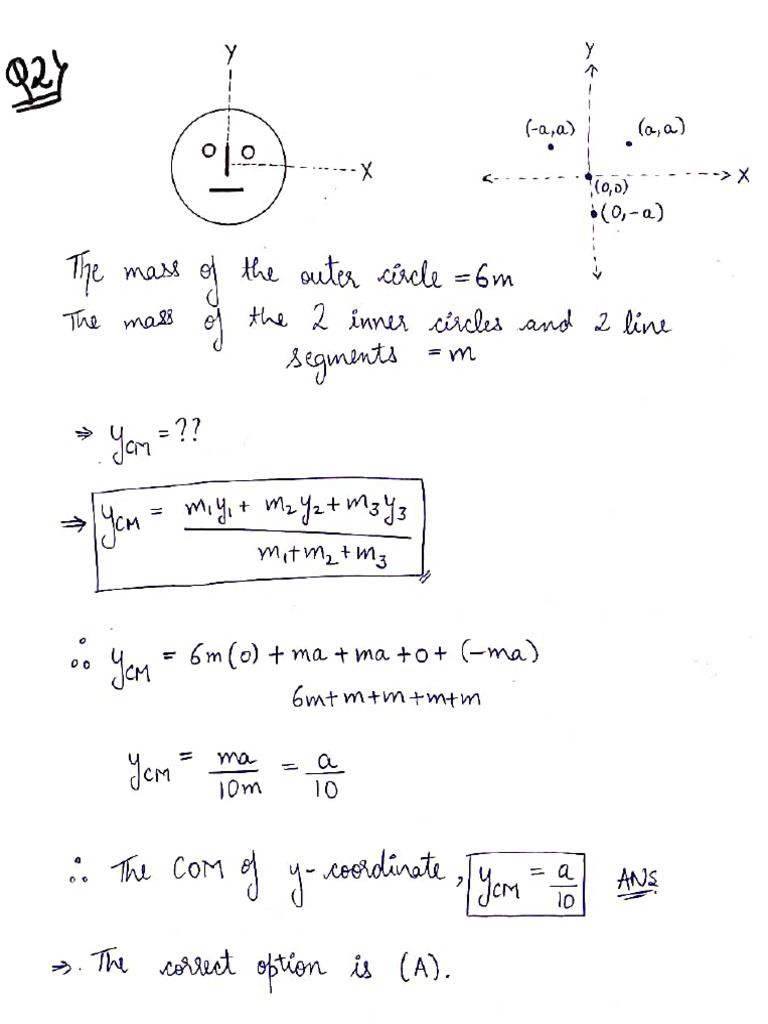 Q2)
Y
X
Y
(-a,a)
(a,a)
X
(0,0)
(0,-a)
The mass of the outer circle = 6m
The mass of the 2 inner circles and 2 line
segments = m
⇒ yCM = ??
⇒ yCM = m1y1 + m2y2 + m3y3
m1+m2+m3
∴ yCM = 6m(0) + ma + ma + 0 + (-ma)
6m+m+m+m+m
yCM = ma/10m = a/10
∴ The COM of y-coordinate, yCM = a/10 ANS
⇒. The correct option is (A).